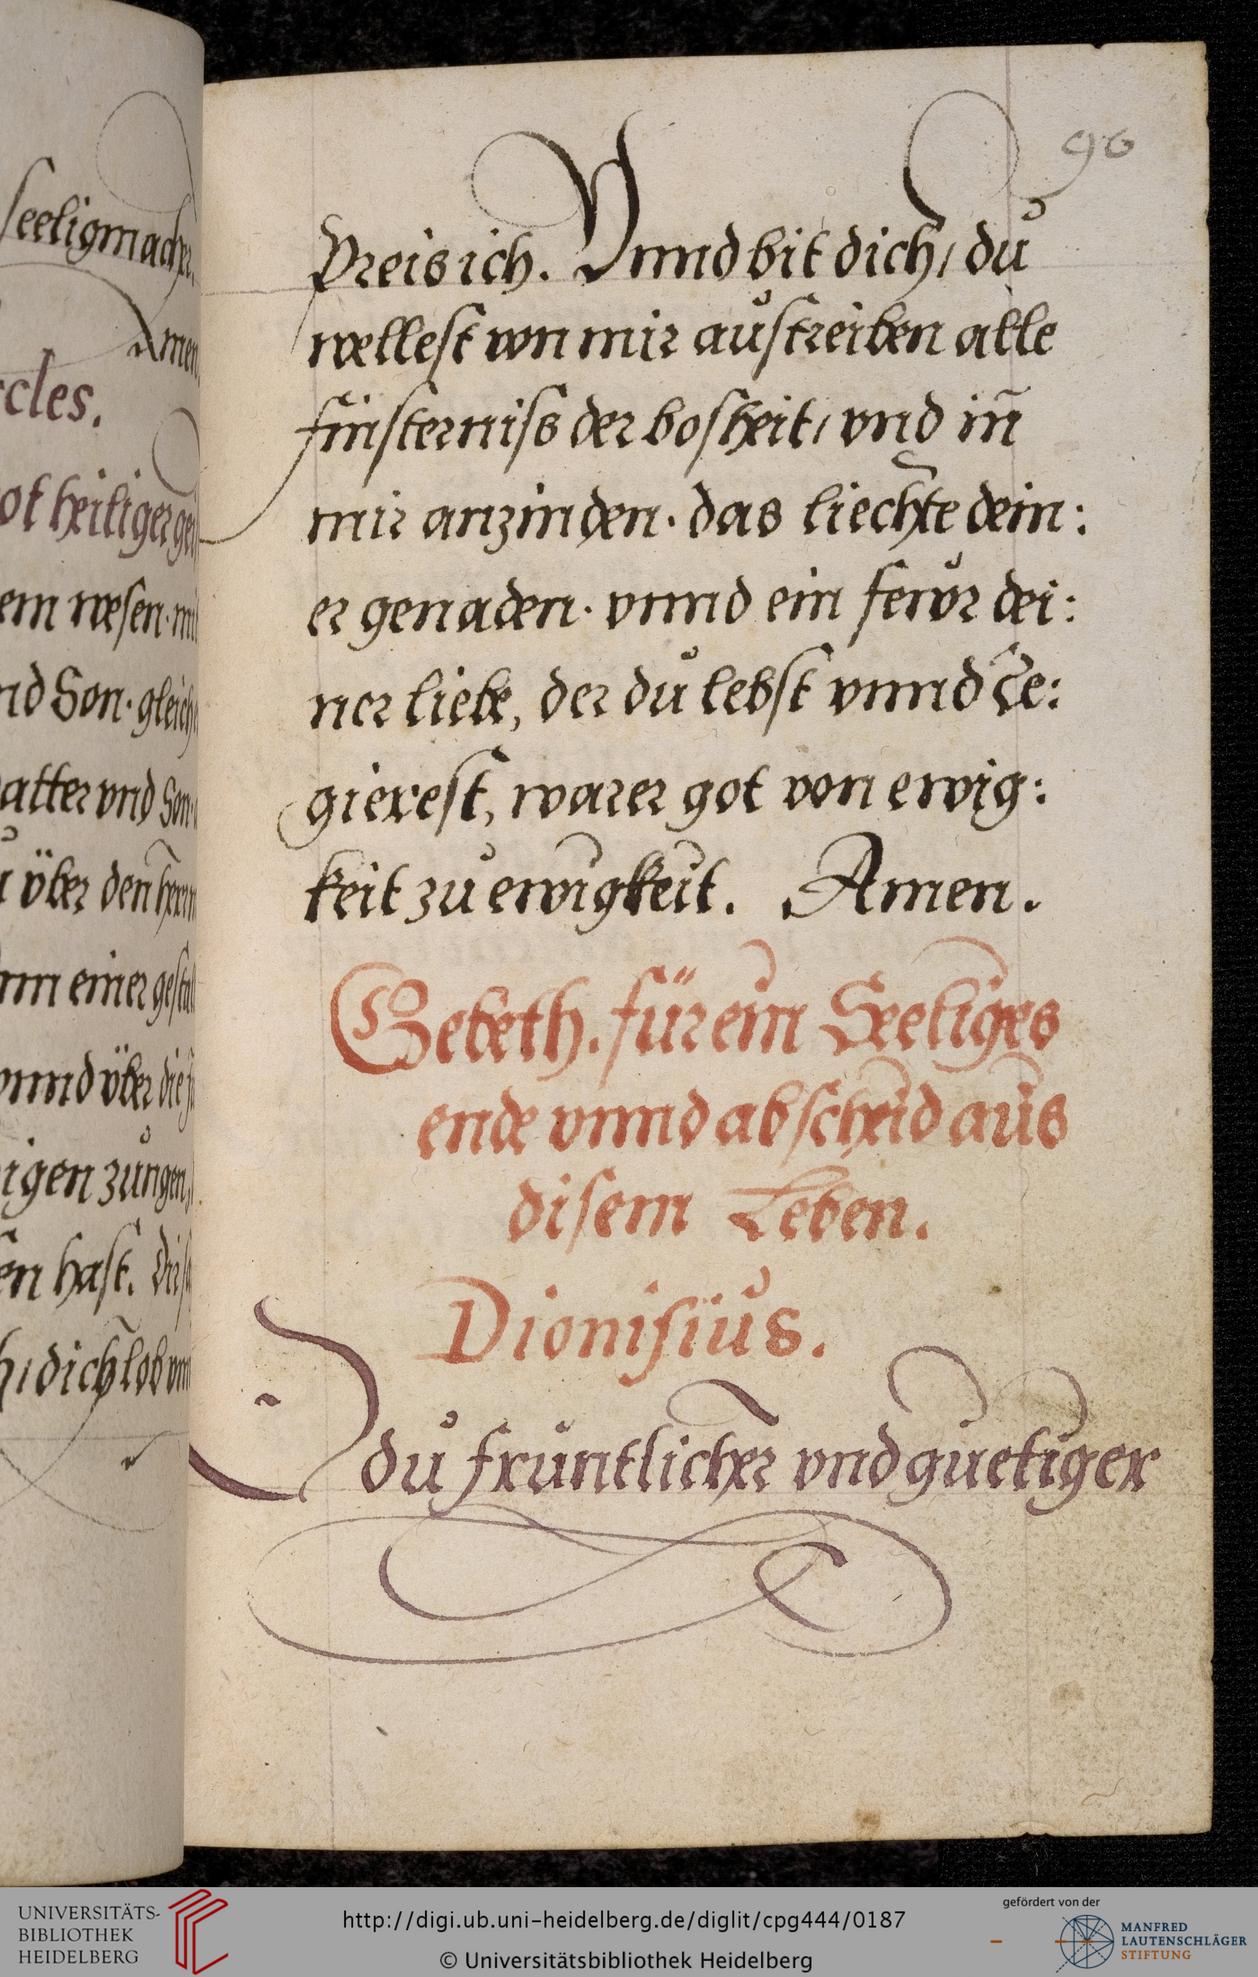 seeligmacher.
Amen
cles.
ot heiliger gei
em wesen. mit
nd Son. gleich
atter vnd Son.
über den herrn
nn einer gestalt
vnnd über die j
igen zungen,
en hast.
h, dich lob vnn
96
Preis ich. Vnnd bit dich, dů
wellest von mir aůstreiben alle
finsterniss der bosheit, vnd iñ
mir anzinden. das liechte dein:
er genaden. vnnd ein feẘr dei:
ner liebe, der dů lebst vnnd Re:
gierest, warer got von ewig:
keit zů ewigkeit. Amen.
Gebeth. für ein Seeliges
ende vnnd abscheid aus
disem Leben.
Dionisiůs.
O dů frůntlicher vnd guetiger
UNIVERSITÄTS-
BIBLIOTHEK
HEIDELBERG
http://digi.ub.uni-heidelberg.de/diglit/cpg444/0187
© Universitätsbibliothek Heidelberg
gefördert von der
MANFRED
LAUTENSCHLÄGER
STIFTUNG